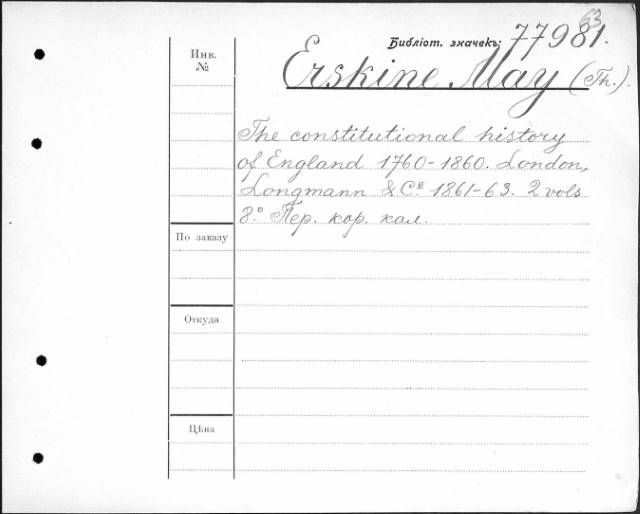 63
Библіот. значекъ: 77981.
Инв. №
Erskine May (Th.).
The constitutional history
of England 1760-1860. London,
Longmann & Cº 1861-63. 2 vols
8.º Пер. кор. кал.
По заказу
Откуда
Цѣна